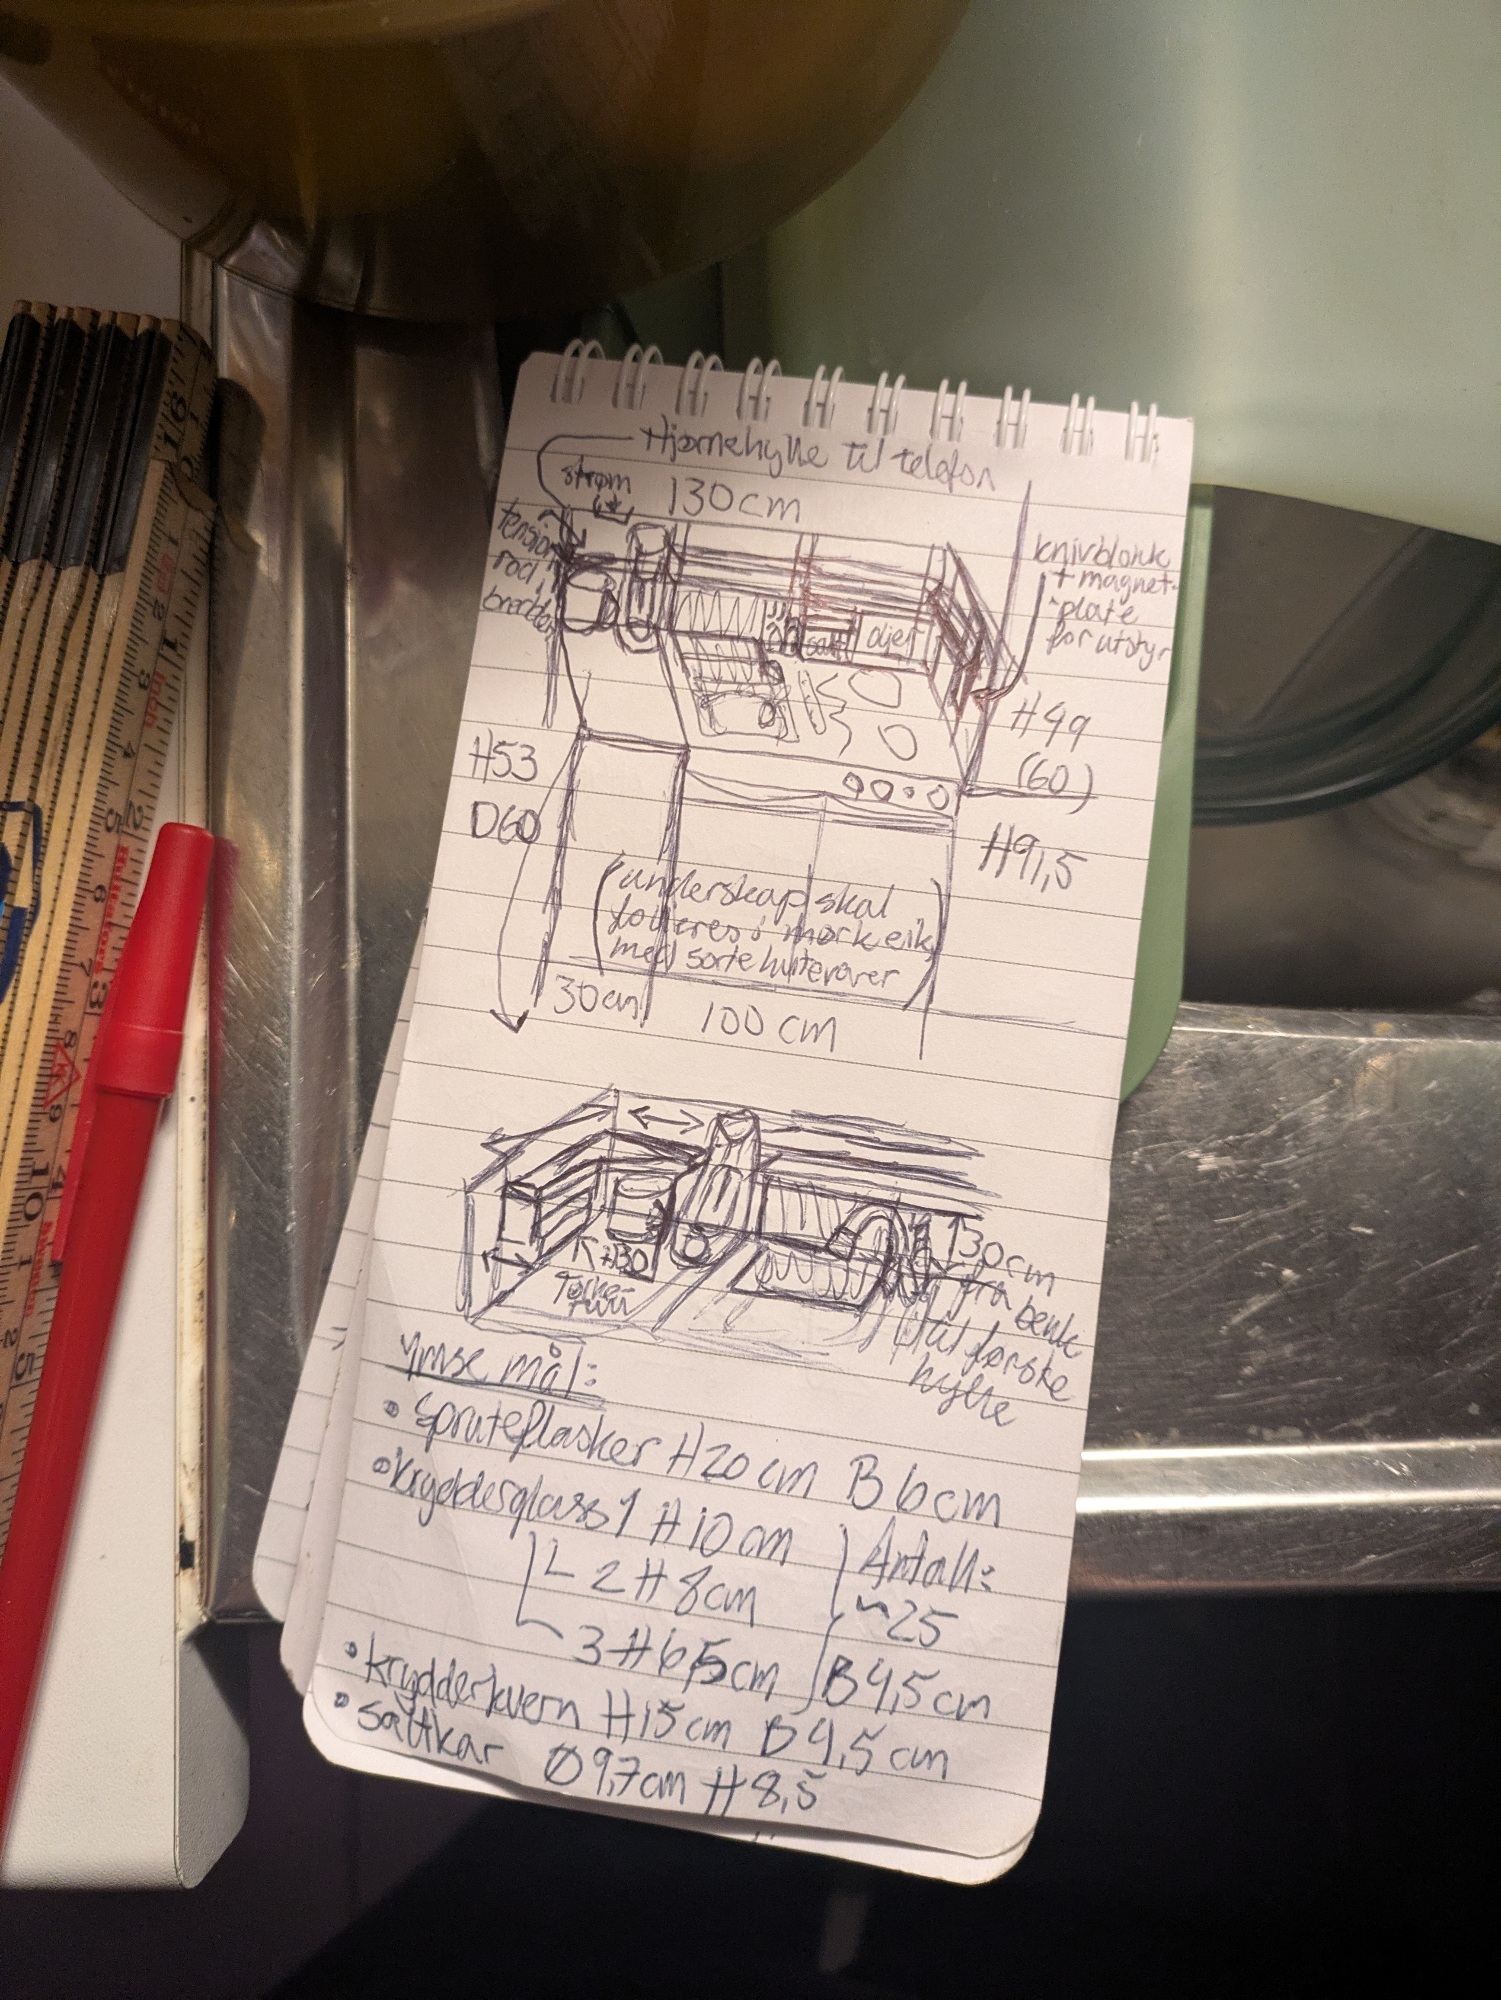 Hjørnehylle til telefon
strøm
130cm
tension
rod i
bredden
knivblokk
+ magnet-
plate
for utstyr
salt
oljer
H49
(60)
H53
D60
H91,5
(underskap skal
folieres i mørk eik
med sorte hvitevarer)
30cm
100 cm
H30
Tørke-
30cm
fra benk
til første
hylle
Ymse mål:
• Spruteflasker H20cm B6cm
• krydderglass 1 H10cm
2 H8cm
3 H6,5cm
Antall:
~25
B4,5cm
• krydderkvern H15cm B4,5cm
• saltkar Ø9,7cm H8,5
inch
Hultafors